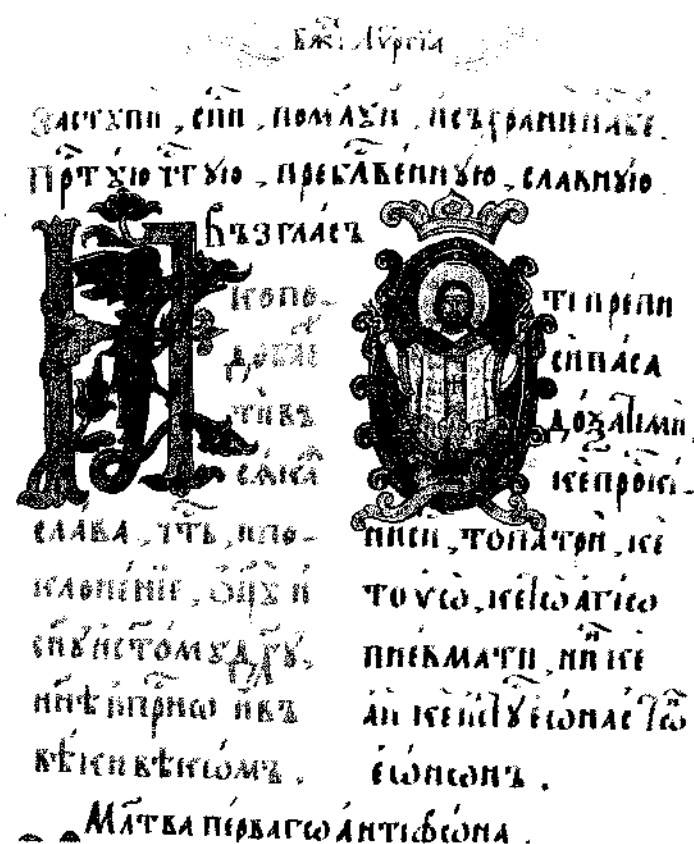 Бжⷭ҇: Лѵ́ргїа
Застꙋпи̂, сп҃и, помлꙋ́й, и҆ съхрани́ на́съ б҃е.
Прⷱ҇тꙋю чⷭ҇тꙋю, пребл҃ве́ннꙋю, сла́внꙋю
възгла́съ
ко по-
доба́е
ти̂ въ
сѧ́каѧ
сла́ва, чⷭ҇ть, и҆ по-
клоне́нїе, ѻ҆ц҃ꙋ̀ и҆
сн҃ꙋ и҆ ст҃о́мꙋ дх҃ꙋ,
нн҃ѣ и҆ прⷭ҇нѡ и҆ в̾
вѣ́ки вѣкѡ́мъ.
ти пре́пи
си па́са
до́ѯа тими̂,
ке про́ски-
ниси, то патри̂, ке
то ѵ҆ѡ̂, ке тѡ а҆гїѡ
пне́вмати, ни҃ ке
а҆й ке и҆стꙋ́с єѡ҆́нас тѡⷩ
є҆ѡ́нѡнъ.
Мл҃тва пе́рвагѡ а҆нтїфѡ́на.